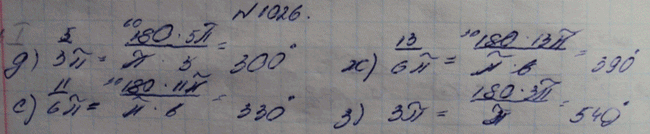 N1026.
I
д) 5/3 π = 180·5π / π·3 = 300°
ж) 13/6 π = 180·13π / π·6 = 390°
е) 11/6 π = 180·11π / π·6 = 330°
з) 3π = 180·3π / π = 540°